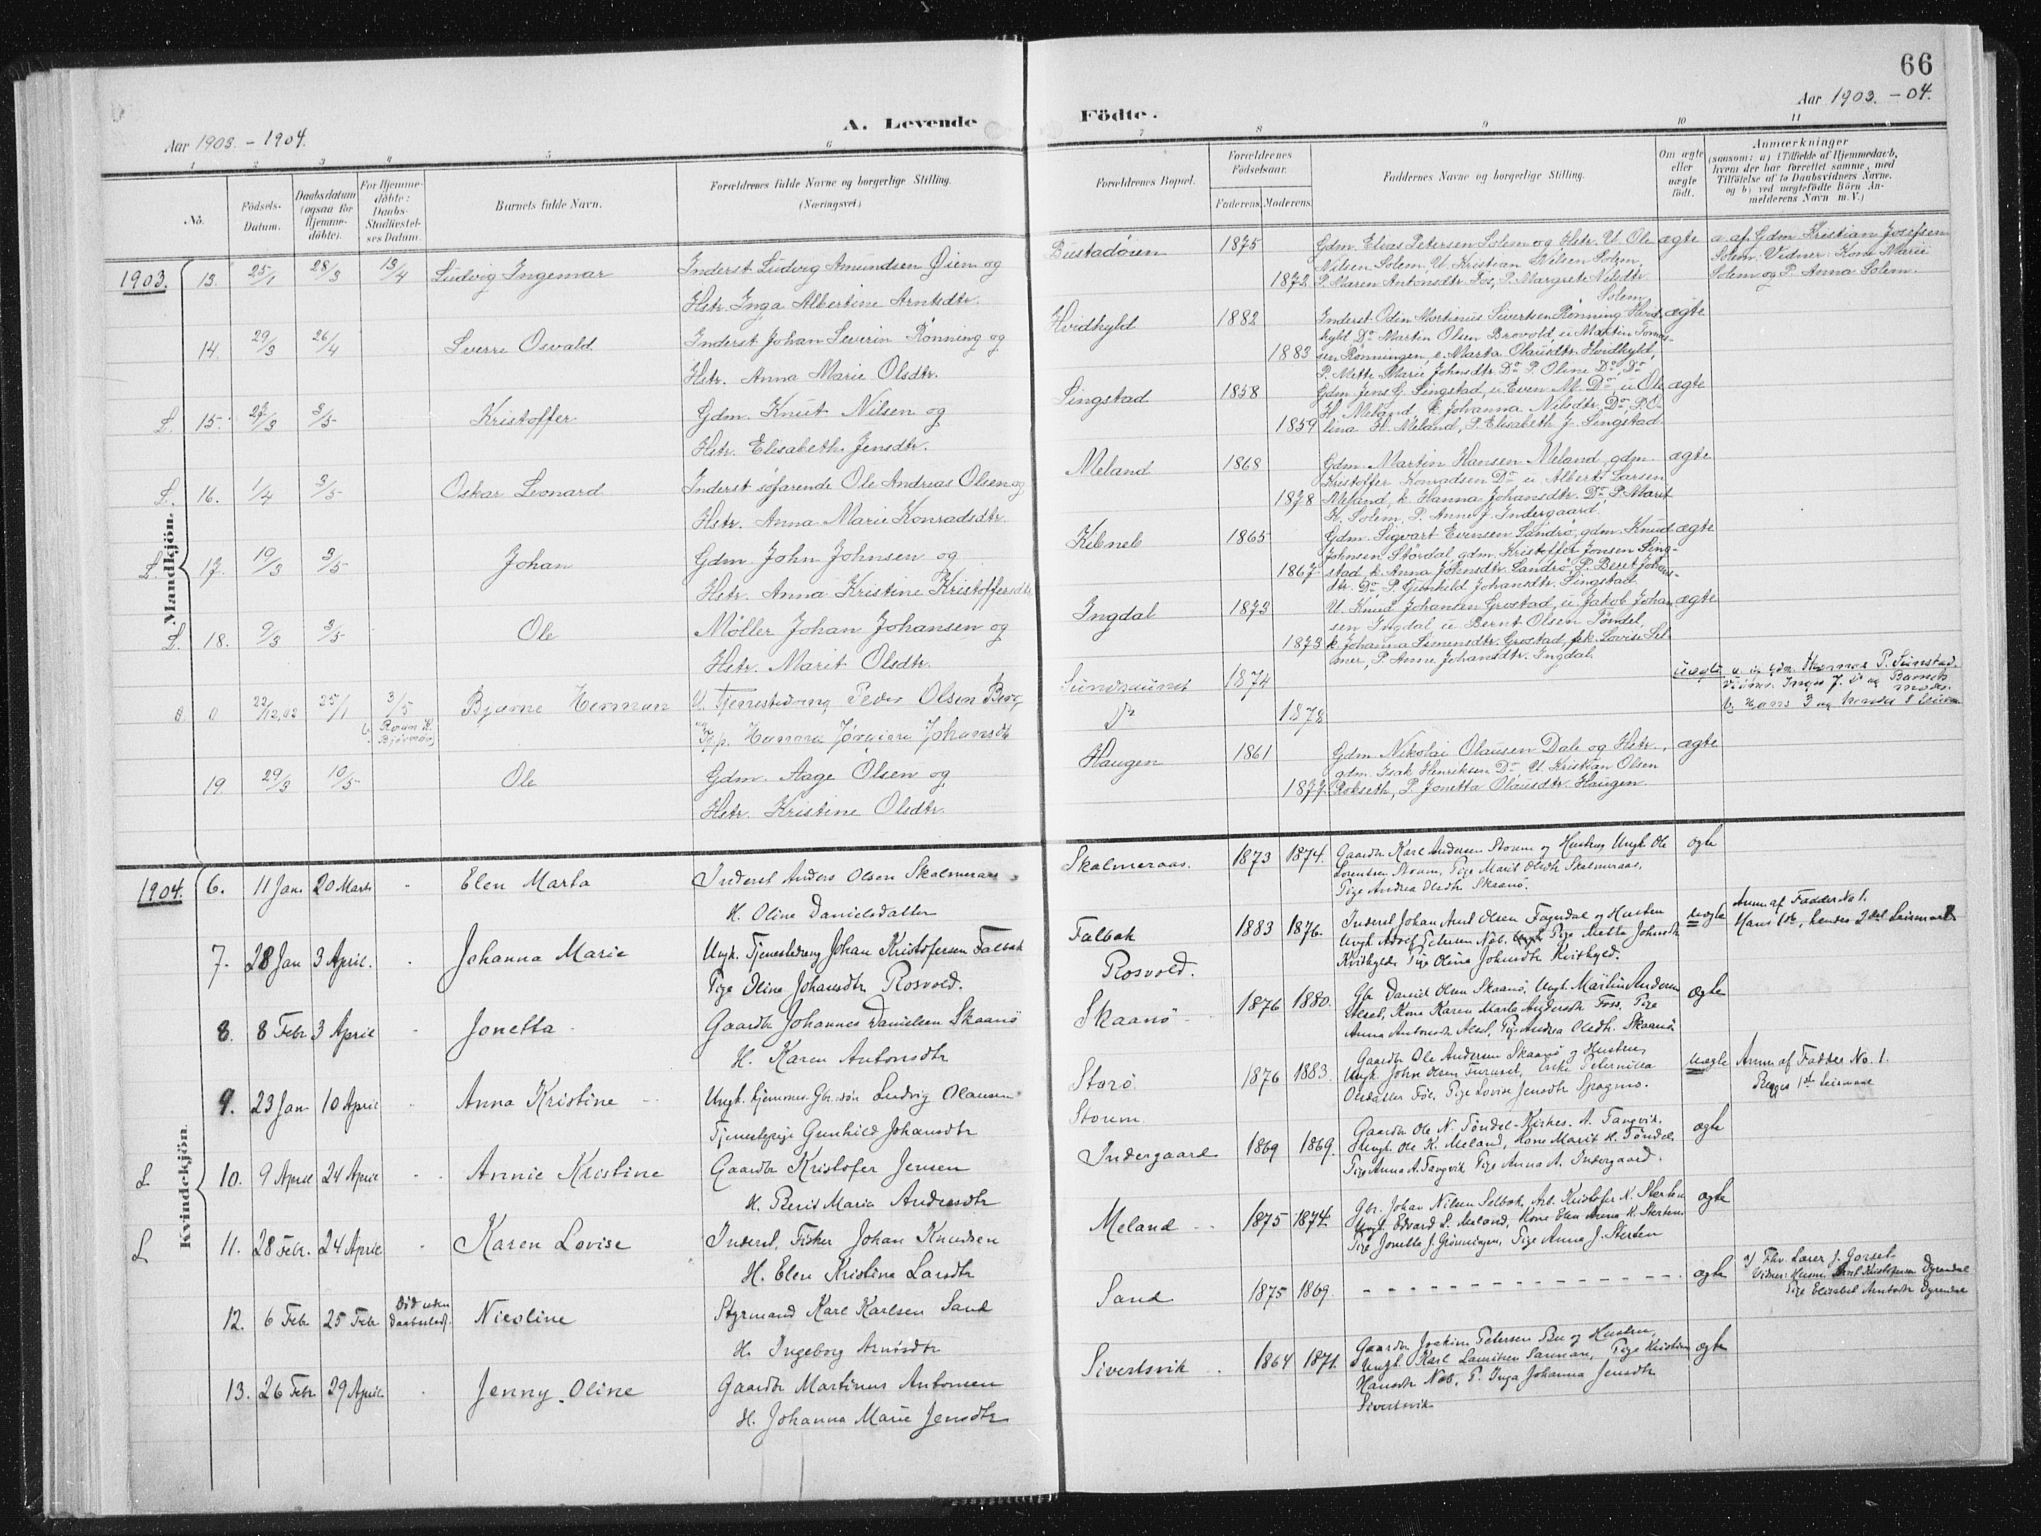 66
Aar 1903. - 1904.
A. Levende
Födte.
Aar 1903. - 04.
1 2 3 4 5 6 7 8 9 10 11
No.
Födsels-Datum.
Daabsdatum (ogsaa for Hjemme-döbte).
For Hjemme-döbte: Daabs-Stadfæstel-ses Datum.
Barnets fulde Navn.
Forældrenes fulde Navne og borgerlige Stilling.
(Næringsvei)
Forældrenes Bopæl.
Forældrenes Födselsaar.
Faderens. Moderens.
Faddernes Navne og borgerlige Stilling.
Om ægte eller uægte födt.
Anmærkninger
(saasom: a) i Tilfælde af Hjemmedaab, hvem der har forrettet samme, med Tilföielse af to Daabsvidners Navne, og b) ved uægtefödte Börn An-melderens Navn m. V.)
Mandkjön.
1903. 13. 25/1 28/3 13/4 Ludvig Ingemar
Inderst Ludvig Amundsen Øien og
Hstr. Inga Albertine Arntsdtr.
Bustadøien 1875 1872
Gdm. Elias Petersen Solem og Hstr. U. Ole
Nilsen Solem, U. Kristian Nilsen Solem,
P. Maren Antonsdtr. Fos, P. Margrete Nilsdtr.
Solem
ægte
a. af Gdm. Kristian Josefsen
Solem. Vidner: Kone Marie
Solem og P. Anna Solem.
14. 29/3 26/4 Sverre Osvald
Inderst Johan Severin Rönning og
Hstr. Anna Marie Olsdtr.
Hvidkyld 1882 1883
Inderst Odin Martinus Sivertsen Rönning Hvid-
kyld Do Martin Olsen Brovold, u Martin Tomas-
sen Rönningen, k. Marta Olausdtr. Hvidkyld,
P. Mette Marie Johnsdtr. Do P. Oline Do, Do
ægte
L. 15. 27/3 3/5 Kristoffer
Gdm. Knut Nilsen og
Hstr. Elisabeth Jensdtr.
Singstad 1858 1859
Gdm. Jens G. Singstad, u Even M. Do, u Ole
H. Meland, k Johanna Nilsdtr. Do, P. O-
lina H. Meland, P. Elisabeth J. Singstad.
ægte
L. 16. 1/4 3/5 Oskar Leonard
Inderst søfarende Ole Andreas Olsen og
Hstr. Anna Marie Konradsdtr.
Meland 1868 1878
Gdm. Martin Hansen Meland, gdm.
Kristoffer Konradsen Do u. Albert Larsen
Meland, k. Hanna Johansdtr. Do, P. Marit
H. Solem, P. Anne J. Indergaard.
ægte
L. 17. 19/3 3/5 Johan
Gdm. John Johnsen og
Hstr. Anna Kristine Kristoffersdtr.
1865 1867
Gdm. Sigvart Evensen Sandrö, gdm. Knud
Johnsen Stördal, gdm. Kristoffer Jonsen Sing-
stad, k. Anna Johnsdtr. Sandrö, P. Beret Johns-
dtr. Do, P. Gunhild Johansdtr. Singstad.
ægte
L. 18. 9/3 3/5 Ole
Møller Johan Johansen og
Hstr. Marit Olsdtr.
Ingdal 1873 1873
U. Knud Johansen Grostad, u. Jakob Johan
sen Ingdal u Bernt Olsen Töndel,
k Johanna Simensdtr. Grostad, k. Lovise Sel-
mer, P. Anne Johansdtr. Ingdal.
ægte
0 0 22/12.02 25/1 3/5 Bjarne Herman
U. Tjenestedreng Peder Olsen Berg
og Pige Hanna Johansdt
Do 1874 1878
uægte
19. 29/3 10/5 Ole
Gdm. Aage Olsen og
Hstr. Kristine Olsdtr.
Haugen 1861 1877
Gdm. Nikolai Olausen Dale og Hstr.,
gdm. Isak Henriksen Do, U. Kristian Olsen
Rokseth, P. Jonetta Olausdtr. Haugen.
ægte
Kvindekjön.
1904. 6. 11 Jan 20 Marts - Elen Marta
Inderst Anders Olsen Skalmeraas
H. Oline Danielsdatter
Skalmeraas. 1873 1874.
Gaardbr Karl Andersen Storum og Hustru, Ungk Ole
Lorentsen Storum, Pige Marit Olsdtr Skalmeraas,
Pige Andrea Olsdtr Skaanö.
ægte
7. 28 Jan 3 April. - Johanna Marie
Ungk. Tjenestedreng Johan Kristofersen Falbak
Pige Oline Johansdtr Rosvold.
Falbak
Rosvold.
1883 1876.
Inderst Johan Arnt Olsen Fagerdal og Hustru
Ungk Adolf Petersen Næs, Pige Metta Johnsdtr
Kvithyld, Pige Olina Johnsdtr Kvithyld.
uægte
Anm. af Fadder No 1.
Hans 1ste, hendes 2det Leiermaal
8. 8 Febr 3 April Jonetta
Gaardbr Johannes Danielsen Skaanö
H. Karen Antonsdtr
Skaanö 1876 1880.
Gbr Daniel Olsen Skaanö, Ungk. Martin Andersen
Alsel, Kone Karen Marta Andersdtr Foss, Pige
Anna Antonsdtr Alsel, Pige Andrea Olsdtr. Skaanö
ægte
9. 23 Jan 10 April - Anna Kristine
Ungk. hjemmev. Gbr.sön Ludvig Olausen
Tjenestepige Gunhild Johansdtr
Storö
Storum
1876 1883.
Gaardbr Ole Andersen Skaanö og Hustru,
Ungk. John Olsen Furuset, Enke Peternilla
Olsdatter Föl, Pige Lovise Jensdtr
uægte
Anm. af Fadder No 1.
Begges 1ste Leiermaal
L 10. 9 April 24 April - Annie Kristine
Gaardbr Kristofer Jensen
H. Berit Maria Andersdtr
Indergaard 1869 1869.
Gaardbr Ole N. Töndel, Kirkes. A. Tangvik,
Ungk. Ole K. Meland, Kone Marit H. Töndel,
Pige Anna A. Tangvik, Pige Anna A. Indergaard.
ægte
L 11. 28 Febr. 24 April Karen Lovise
Inderst, Fisker Johan Knudsen
H. Elen Kristina Larsdtr
Meland 1875 1874.
Gbr. Johan Nilsen Selbak, Arb. Kristofer N. Sterten
Ungk. Edvard L. Meland, Kone Elen Anna K. Sterten
Pige Jonetta J. Grönningen, Pige Anna J. Sterten
ægte
12. 6 Febr 25 Febr Död uden Daabsstadf. Nicoline
Styrmand Karl Karlsen Sand
H. Ingeborg Arntsdtr
Sand 1875 1869.
- - - - - - - -
ægte
a/ Fhv Lærer J. Gorset
Vidner: Husm. Arnt Kristofersen Dyrendal
Pige Elisabet Arntsdtr Dyrendal
13. 26 Febr 29 April. Jenny Oline
Gaardbr Martinus Antonsen
H. Johanna Marie Jensdtr
Sivertsvik 1864 1871.
Gaardbr Joakim Petersen Bu og Hustru,
Ungk Karl Lauritsen Sannan, Pige Kristine
Hansdtr Næs, P. Inga Johanna Jensdtr
Sivertsvik
ægte